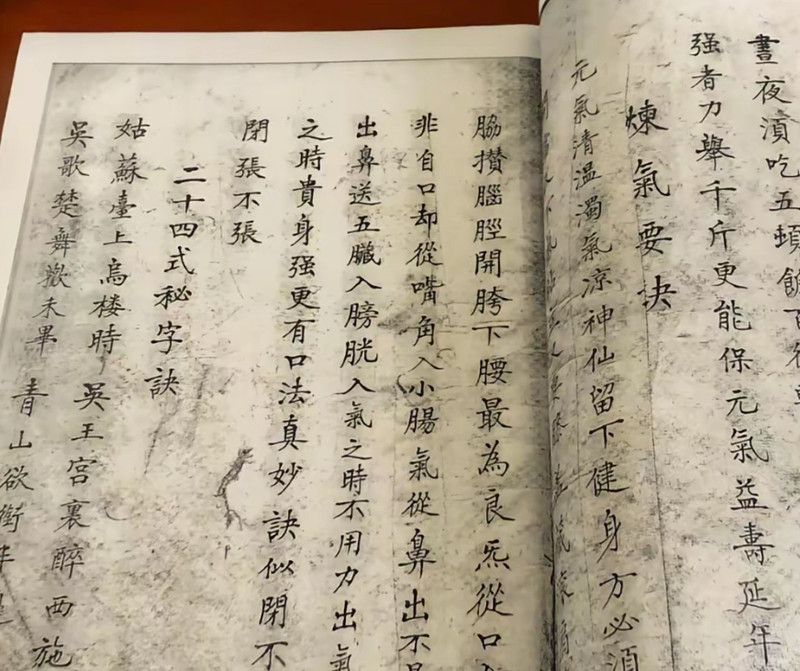 晝夜湏吃五頓飽百
强者力舉千斤更能保元氣益壽延年
煉氣要訣
元氣清温濁氣凉神仙留下健身方必湏
脇攢腦脛開胯下腰最為良炁從口入
非自口却從嘴角入小腸氣從鼻出不是
出鼻送五臟入膀胱入氣之時不用力出氣
之時貴身强更有口法真妙訣似閉不
閉張不張
二十四式秘字訣
姑蘇臺上烏楼時 吴王宮裏醉西施
吴歌楚舞歡未畢 青山欲銜半邊